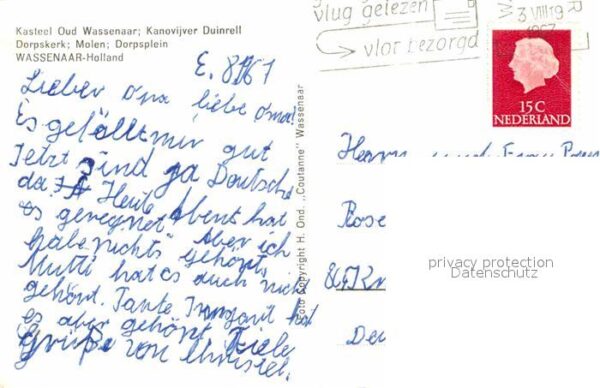 Kasteel Oud Wassenaar; Kanovijver Duinrell
Dorpskerk; Molen; Dorpsplein
WASSENAAR-Holland
vlug gelezen
vlor bezorgd
3 VIII 19
1967
15 C
NEDERLAND
Lieber opa liebe oma!
Es gefällt mir gut
Jetzt sind ja Deutsche
da. Heute Abent hat
es geregnet. Aber ich
habe nichts gehört,
Mutti hat es auch nicht
gehört. Tante Irmgart hat
es aber gehört Viele
Grüße von Christel.
Foto Copyright H. Ond. „Coutanne" Wassenaar
Herrn und Frau
Rose
privacy protection
Datenschutz